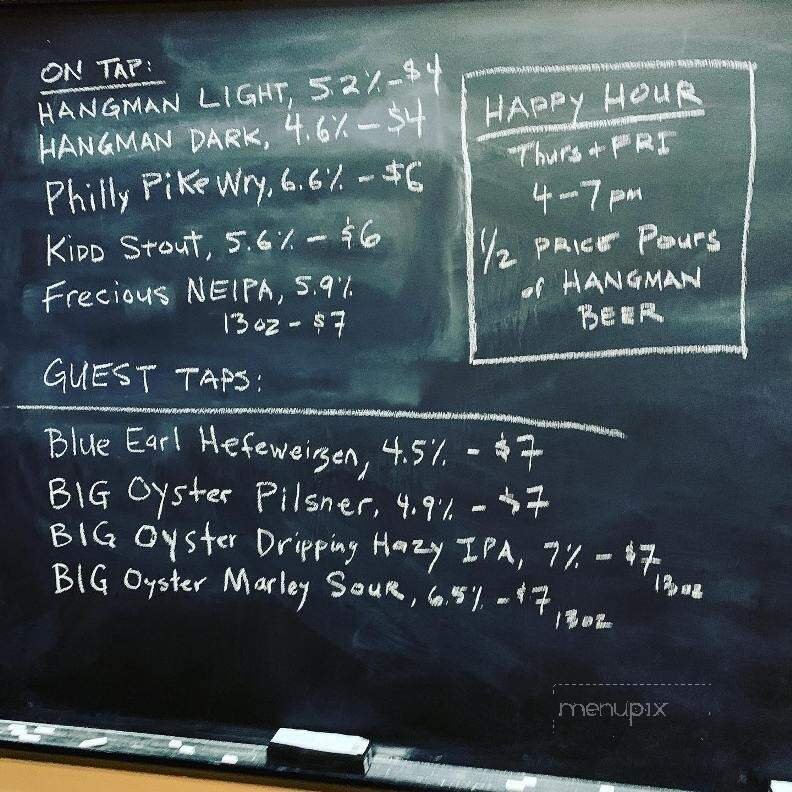 ON TAP:
HANGMAN LIGHT, 5.2% - $4
HANGMAN DARK, 4.6% - $4
Philly Pike Wry, 6.6% - $6
Kidd Stout, 5.6% - $6
Frecious NEIPA, 5.9%
13oz - $7
HAPPY HOUR
Thurs + FRI
4-7pm
1/2 PRICE Pours
of HANGMAN
BEER
GUEST TAPS:
Blue Earl Hefeweizen, 4.5% - $7
BIG Oyster Pilsner, 4.9% - $7
BIG Oyster Dripping Hazy IPA, 7% - $7
13oz
BIG Oyster Marley Sour, 6.5% - $7
13oz
menupix